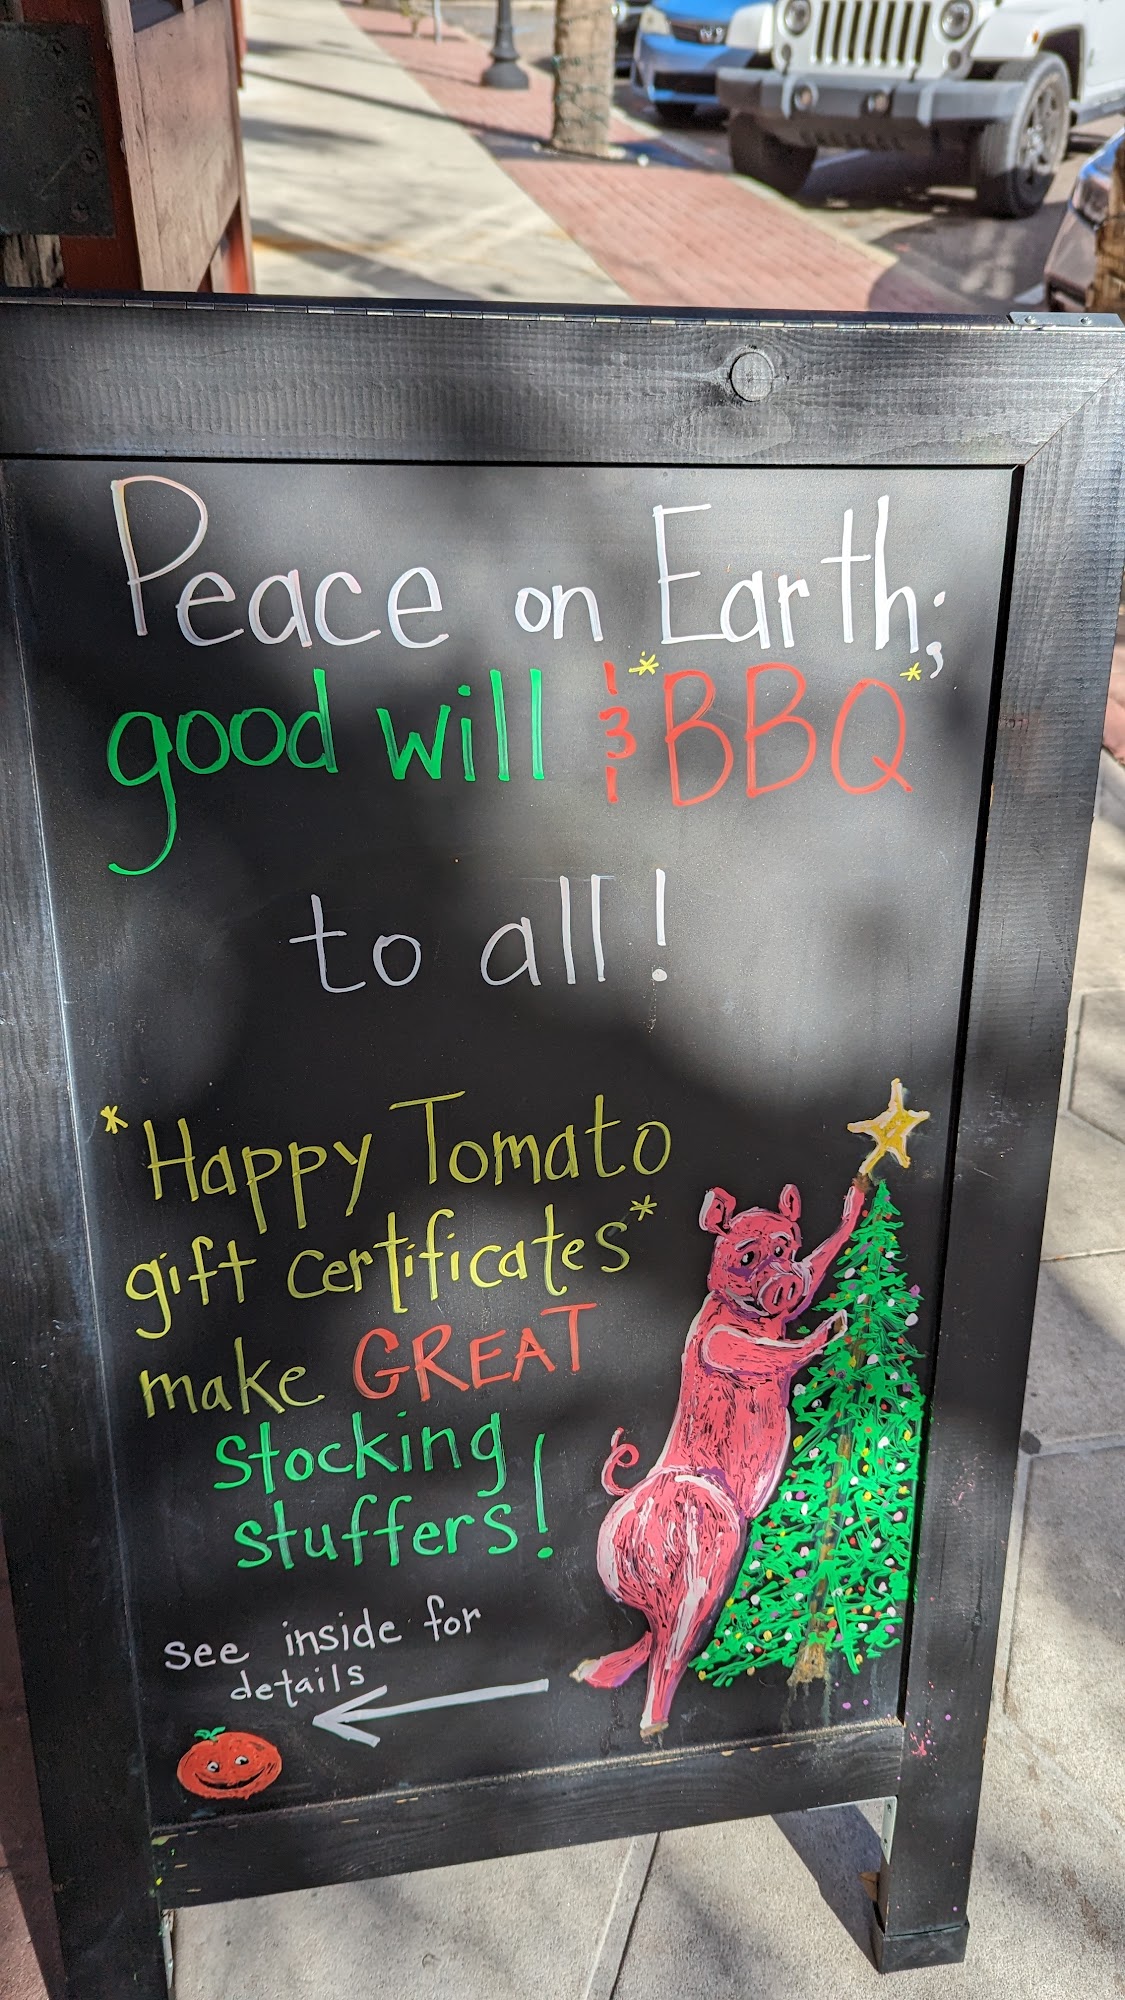 Peace on Earth;
good will & *BBQ*
to all!
*Happy Tomato
gift certificates*
make GREAT
stocking
stuffers!
see inside for
details